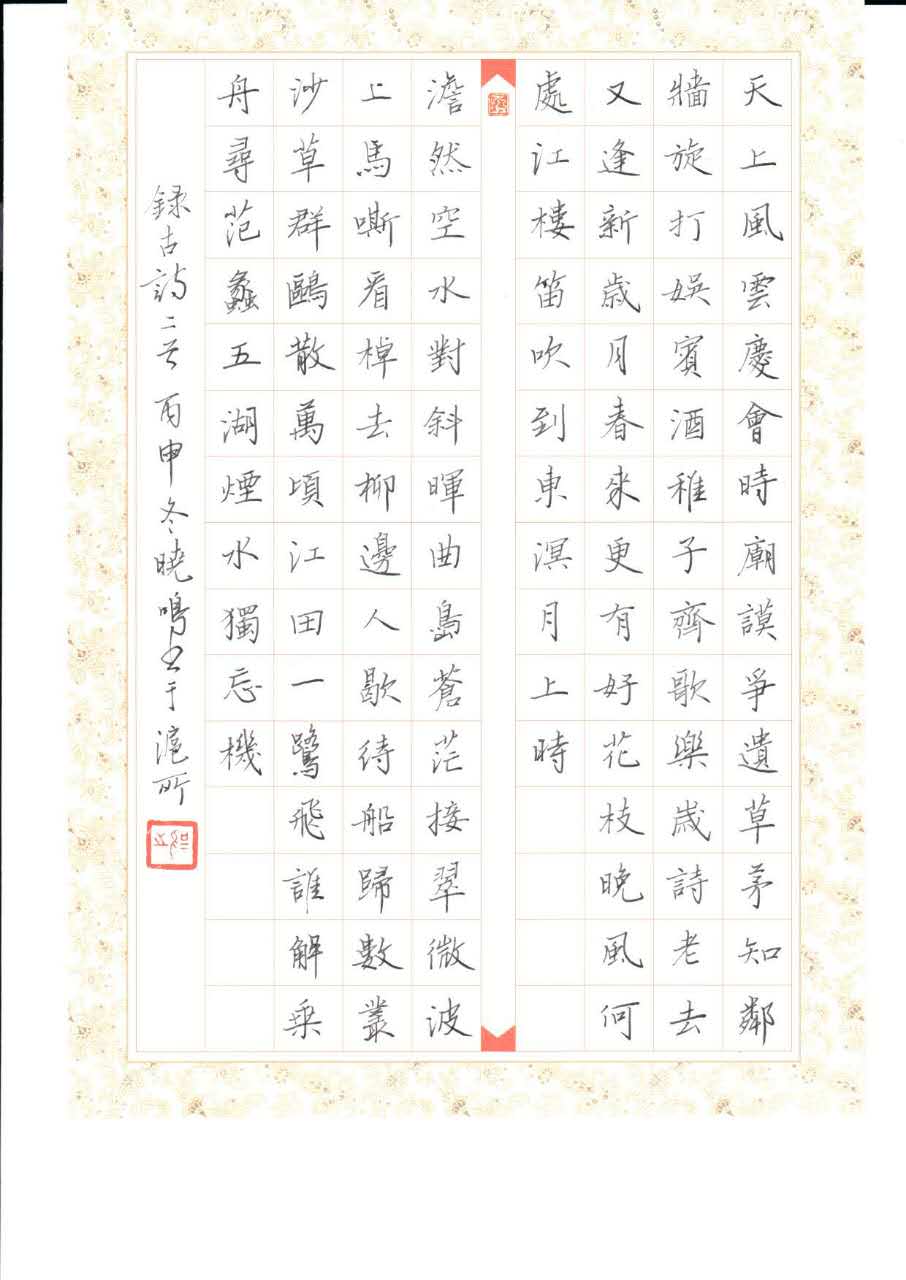 天上風雲慶會時廟謨爭遺草茅知鄰
牆旋打娛賓酒稚子齊歌樂歲詩老去
又逢新歲月春來更有好花枝晚風何
處江樓笛吹到東溟月上時
澹然空水對斜暉曲島蒼茫接翠微波
上馬嘶看棹去柳邊人歇待船歸數叢
沙草群鷗散萬頃江田一鷺飛誰解乘
舟尋范蠡五湖煙水獨忘機
録古詩二首丙申冬曉鳴書于滬所